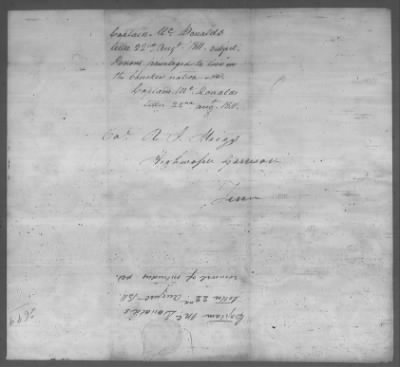 Captain Mc Donalds
letter 22nd Augt 1811. subject
persons privileged to live in
the Cherokee nation
Captain Mc Donalds
letter 22nd Augt 1811.
Col R. J. Meigs
Highwassee Garrison
Tenn
Captain Mc Donald's
letter 22nd August 1811
removal of intruders &c.